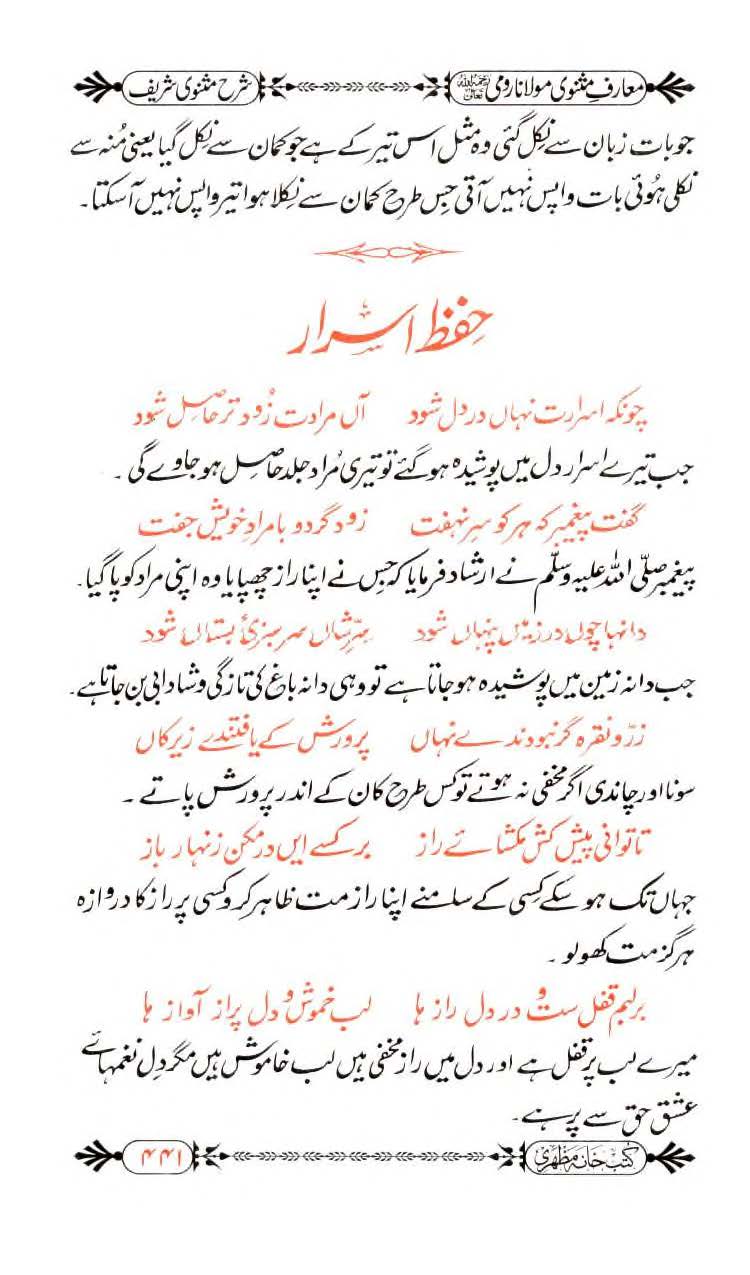 معارف مثنوی مولانا رومی رحمہ اللہ تعالیٰ شرح مثنوی شریف
جو بات زبان سے نکل گئی وہ مثل اس تیر کے ہے جو کمان سے نکل گیا یعنی مُنہ سے
نکلی ہُوئی بات واپس نہیں آتی جس طرح کمان سے نکلا ہوا تیر واپس نہیں آسکتا۔
حِفظِ اسرار
چونکہ اسرارت نہاں در دل شود آں مرادت زُود تر حاصل شود
جب تیرے اسرار دل میں پوشیدہ ہو گئے تو تیری مُراد جلد حاصل ہو جاوے گی ۔
گفت پیغمبر کہ ہر کو سر نہفت زود گردو بامرادِ خویش جفت
پیغمبر صلّی اللہ علیہ وسلّم نے ارشاد فرمایا کہ جس نے اپنا راز چھپایا وہ اپنی مراد کو پا گیا۔
دانہا چوں در زمیں پنہاں شود سِرّشاں سرسبزیٔ بستاں شود
جب دانہ زمین میں پوشیدہ ہو جاتا ہے تو وہی دانہ باغ کی تازگی و شادابی بن جاتا ہے۔
زرّ و نقرہ گر نبودندے نہاں پرورش کے یافتندے زیر کاں
سونا اور چاندی اگر مخفی نہ ہوتے تو کس طرح کان کے اندر پرورش پاتے ۔
تاتوانی پیش کش مکشائے راز بر کسے ایں در مکن زنہار باز
جہاں تک ہو سکے کِسی کے سامنے اپنا راز مت ظاہر کرو کسی پر راز کا دروازہ
ہرگز مت کھولو ۔
برلبم قفل ست و در دل راز ہا لب خموش و دل پر از آواز ہا
میرے لب پر قفل ہے اور دل میں راز مخفی ہیں لب خاموش ہیں مگر دِل نغمہائے
عشق حق سے پر ہے۔
کتب خانہ مظہری ۴۴۱